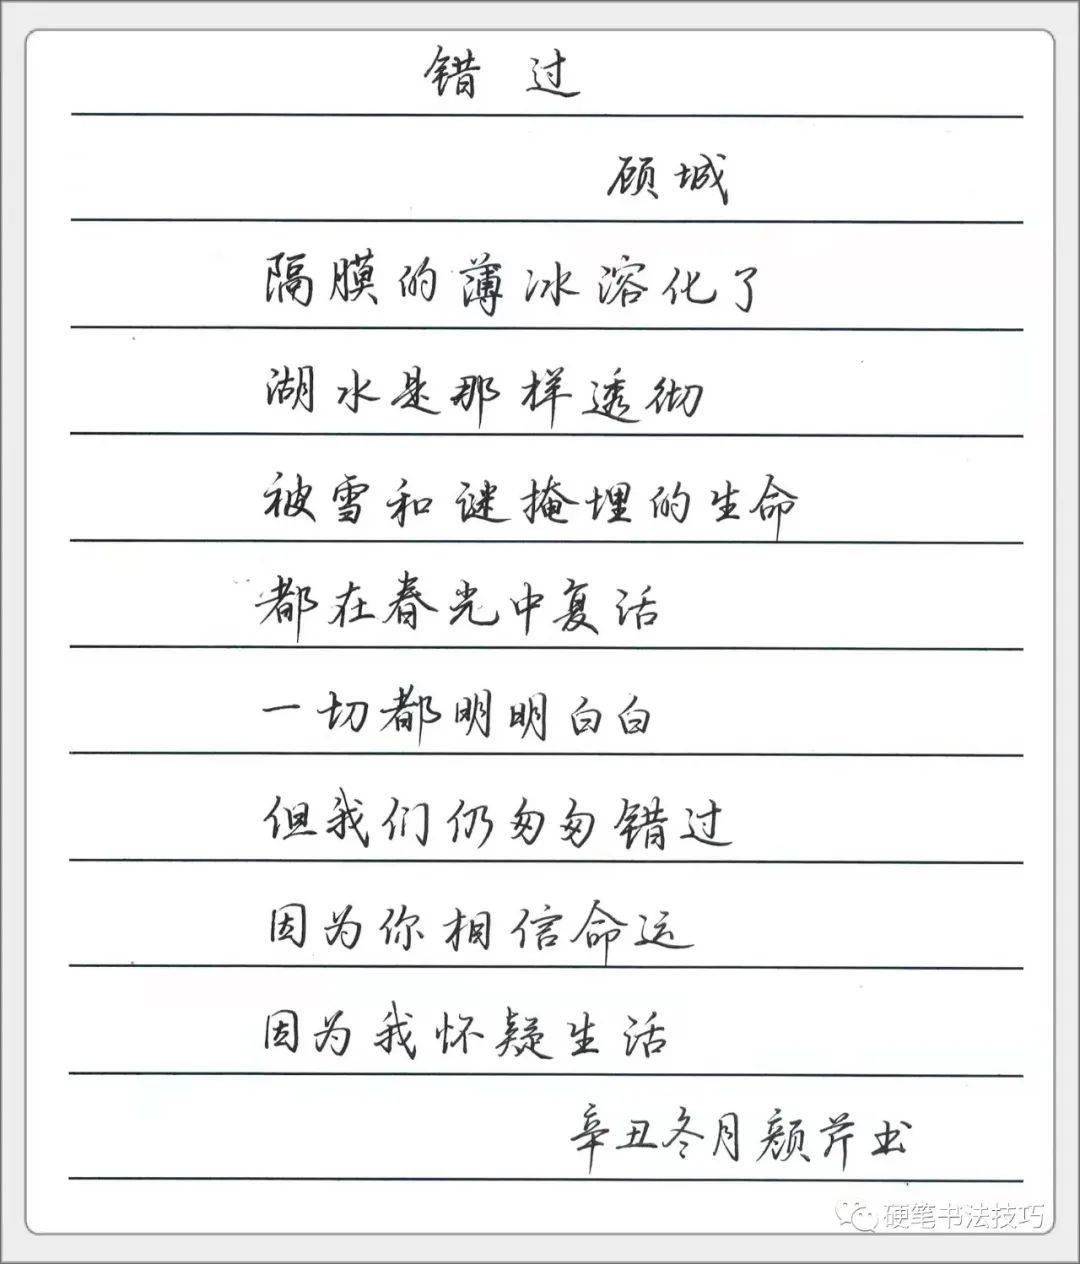 错过
顾城
隔膜的薄冰溶化了
湖水是那样透彻
被雪和谜掩埋的生命
都在春光中复活
一切都明明白白
但我们仍匆匆错过
因为你相信命运
因为我怀疑生活
辛丑冬月颜芹书
硬笔书法技巧